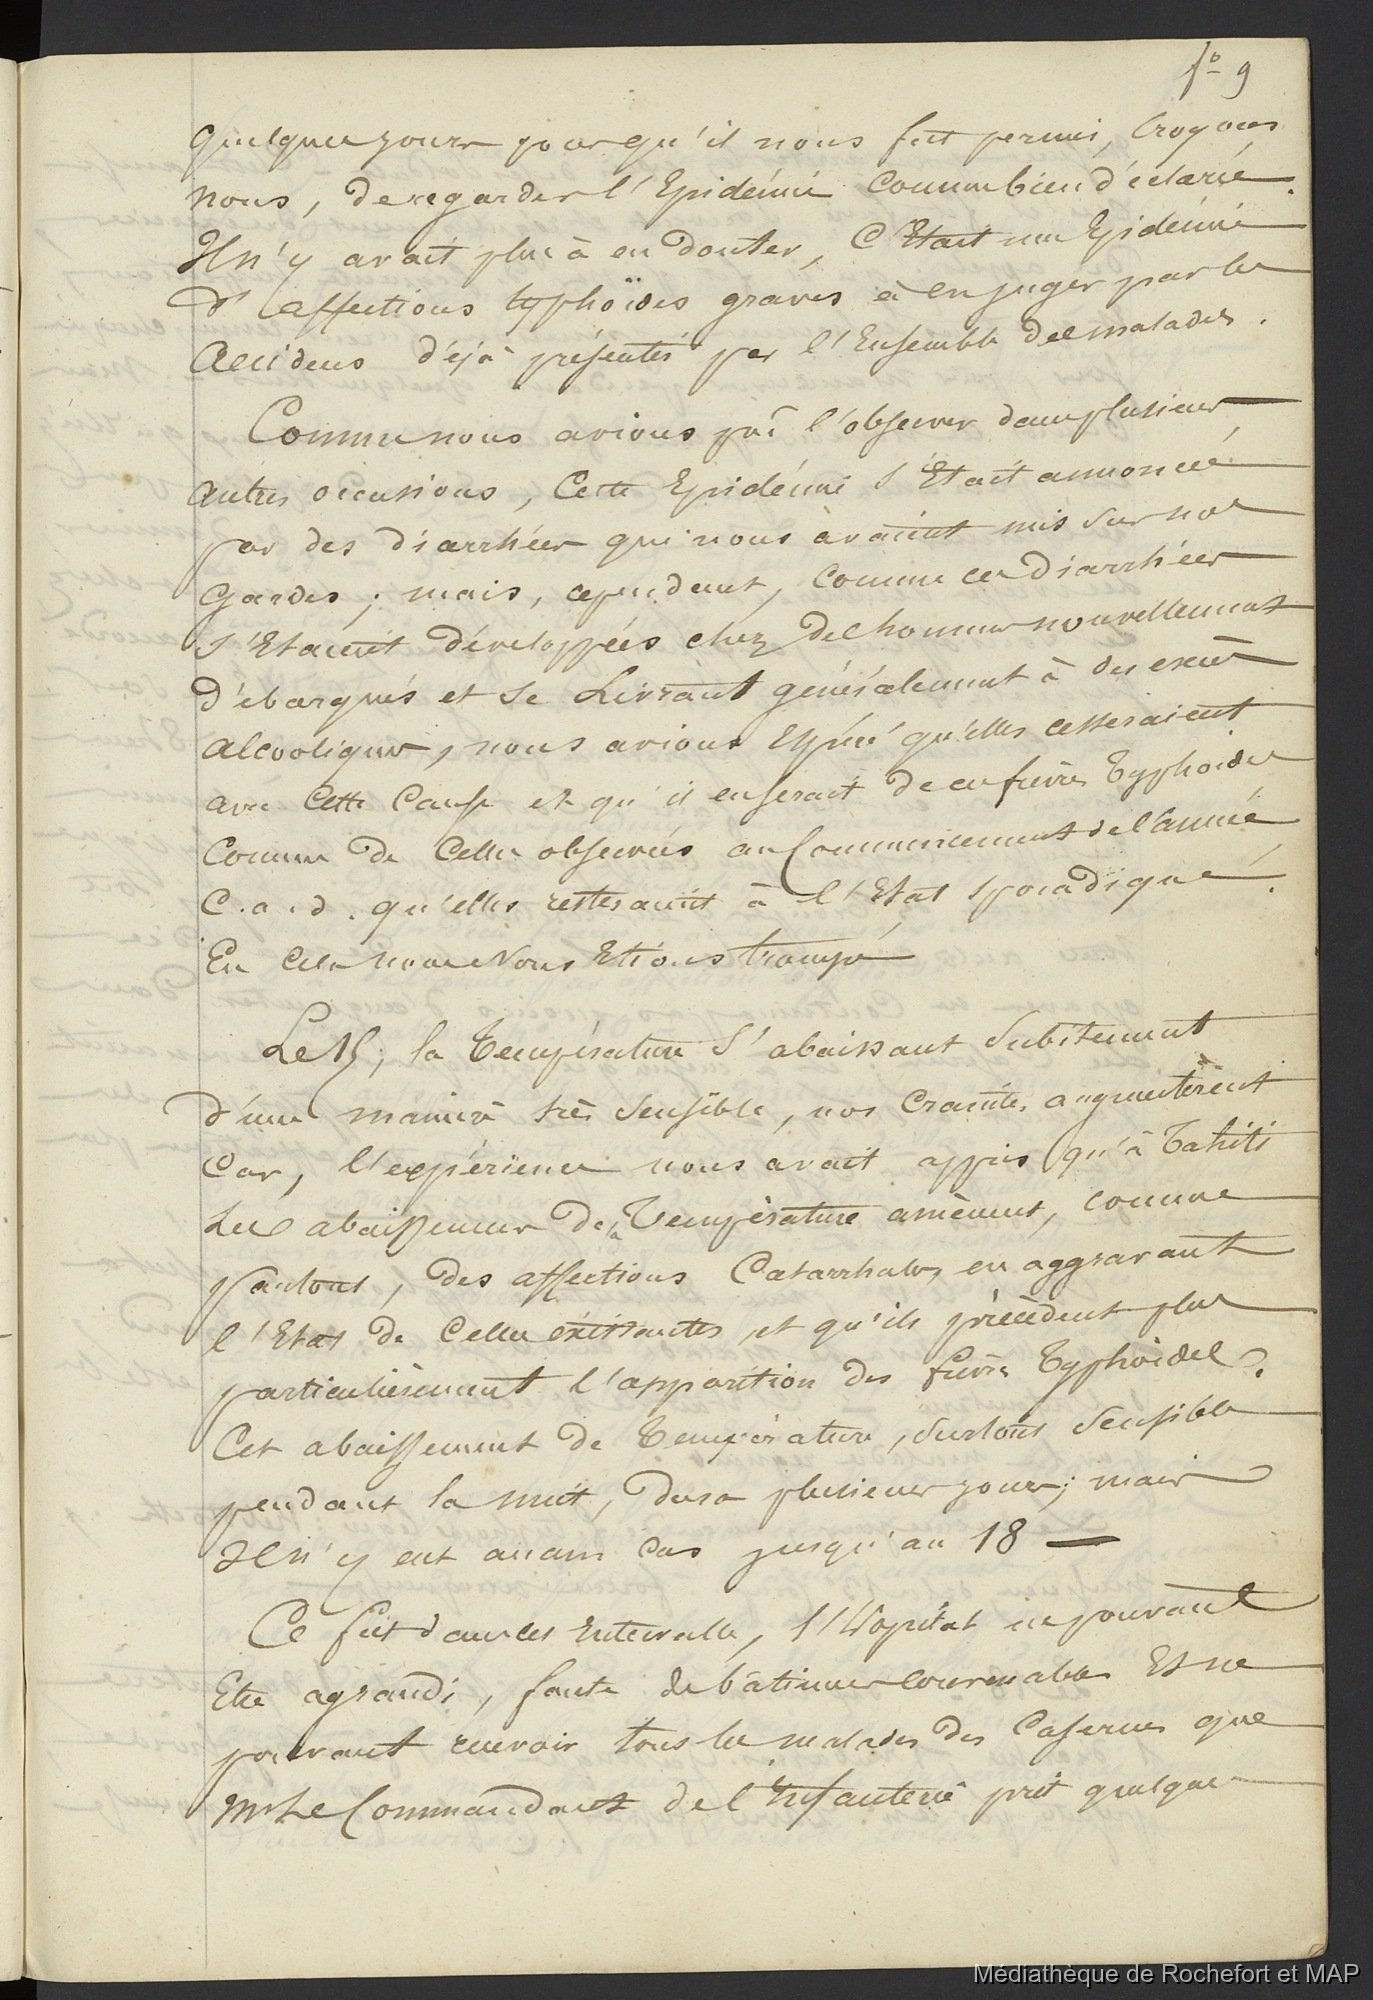 fo 9
quelques jours pour qu'il nous fut permis, croyons
nous, de regarder l'Epidémie comme bien déclarée.
Il n'y avait plus à en douter, C'Etait une Epidémie
d'affections typhoïdes graves à en juger par les
accidens déjà présentés par l'Ensemble des malades.
Comme nous avions pû l'observer dans plusieurs
autres occasions, Cette Epidémie s'Etait annoncée
par des diarrhées qui nous avaient mis sur nos
gardes ; mais, cependant, comme ces diarrhées
s'Etaient développées chez des hommes nouvellement
débarqués et se Livrant généralement à des excès
alcooliques, nous avions Espéré qu'elles cesseraient
avec Cette Cause et qu'il en serait de ces fièvres Typhoïdes
comme de Celles observées au Commencement de l'année,
C.a.d. qu'elles resteraient à l'Etat sporadique.
En cela nous Nous Etions trompé
Le 15, la Température s'abaissant Subitement
d'une manière très Sensible, nos craintes augmentèrent
Car, l'expérience nous avait appris qu'à Tahiti
Les abaissemens de la Température amènent, comme
partout, des affections Catarrhales, en aggravant
l'Etat de Celles existantes, et qu'ils précèdent plus
particulièrement l'apparition des fièvres Typhoïdes.
Cet abaissement de Température, Surtout Sensible
pendant la nuit, dura plusieurs jours ; mais
Il n'y eut aucun Cas jusqu'au 18 —
Ce fut dans cet Intervalle, l'Hôpital ne pouvant
Etre agrandi, faute de bâtimens convenables Et ne
pouvant recevoir tous les malades des Casernes que
Mr Le Commandant de l'Infanterie prit quelques
Médiathèque de Rochefort et MAP